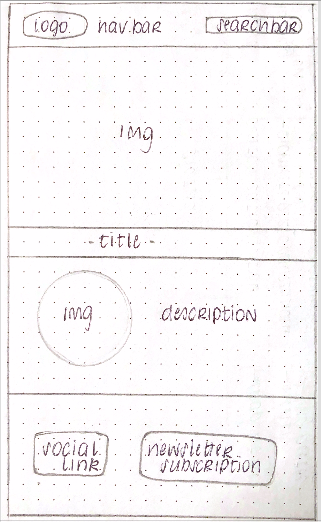 logo nav.bar searchbar
img
-title-
img description
social
link
newsletter
subscription